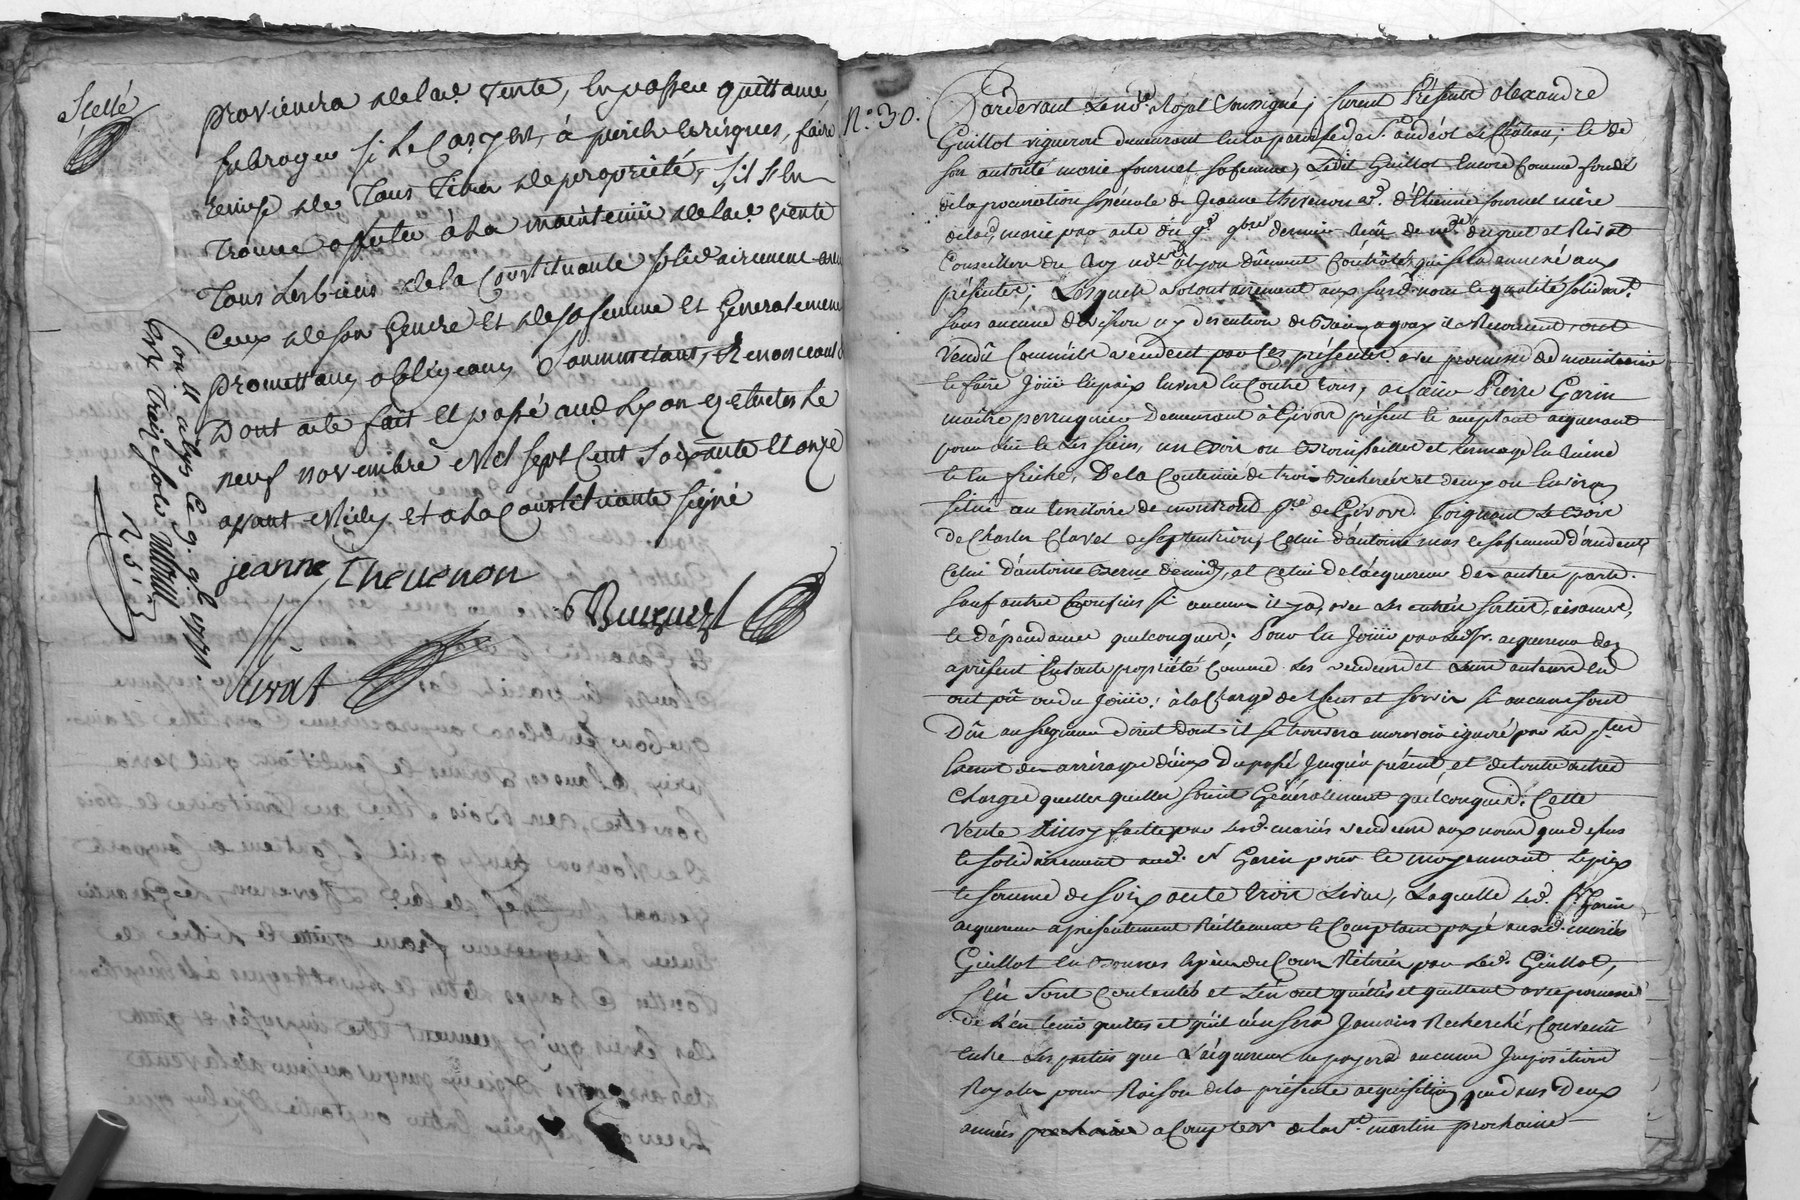 Scellé
proviendra de lad. vente, en passer quittance,
subroger si le cas y est, à périls et risques, faire
remise de tous titres de propriété, s'il s'en
trouve affecter à la maintenüe de lad. vente
tous les biens de la Constituante solidairement avec
Ceux de son gendre et de sa femme et généralement
promettant, obligeant, soummetant, Renonceant
Dont acte fait et passé aud. Lyon ez études le
neuf novembre mil sept Cent soixante et onze
avant midy et a la Constituante signé
jeanne Thevenon
Bruguet
Rivat
Con.llé a lyon Ce 9. 9.bre 1771.
reçu treize sols
N.° 30.
Pardevant le no.re Royal soussigné; furent Présents alexandre
Guillot vigneron demeurant en la paroisse de S.t andéol le Château; et de
son autorité marie fournel sa femme, Ledit Guillot encore Comme fondé
de la procuration spéciale de Jeanne thevenon v.e d'Etienne fournel mère
de lad. marie par acte du 9.e 9bre dernier reçu de m.es bruguet et Rivat
Conseillers du Roy no.res à Lyon dûement Contrôlé, qui sera annexé aux
présentes; Lesquels volontairement aux susd. noms et qualité solidairem.t
sans aucune division ny discution de Biens a quoy ils Renoncent, ont
vendû Comme ils vendent par Ces présentes avec promesse de maintenir
et faire Joüir en paix envers et Contre tous, a sieur Pierre Garin
maitre perruquier demeurant à Givors présent et acceptant acquereur
pour lui et les siens, un Bois ou Broussailles et hermage en ruine
et en friche, De la Contenue de trois Bicherées et demy ou environ
située au territoire de montrond p.sse de Givors Joignant le Bois
de Charles Clavel de septentrion, Celui d'antoine mas et sa femme d'orient,
Celui d'antoine Berne de midy, et Celui de l'acquereur des autres parts.
sauf autres Confins si aucuns il y a, avec ses entrées sorties, aisances,
et dépendances quelconques; Pour en Joüir par led. Sr. acquereur dez
a présent en toute propriété Comme les vendeurs et leurs auteurs en
ont pû ou dû Joüir; à la Charge de Cens et servis si aucuns sont
Dûs au seigneur direct dont il se trouvera mouvoir ignoré par les p.ties
francs des arrérages d'iceux Du passé Jusqu'à présent, et de toutes autres
charges quelles qu'elles soient Généralement quelconques. Cette
vente ainsy faitte par les d. mariés vendeurs aux noms que dessus
et solidairement aud. S. Garin pour et moyennant le prix
et somme de soixante trois Livres, Laquelle led. S.r Garin
acquereur a présentement Réellement et Comptant payé auxd. mariés
Guillot en bonnes especes du Cours Retirées par led. Guillot,
s'en sont Contentés et l'en ont quittés et quittent avec promesse
de l'en tenir quittes et qu'il n'en sera Jamais Recherché, Convenû
entre les parties que l'acquereur ne payera aucunes Impositions
Royales pour Raison de la présente acquisition, que dans Deux
années prochaines a Compter de la S.t martin prochaine